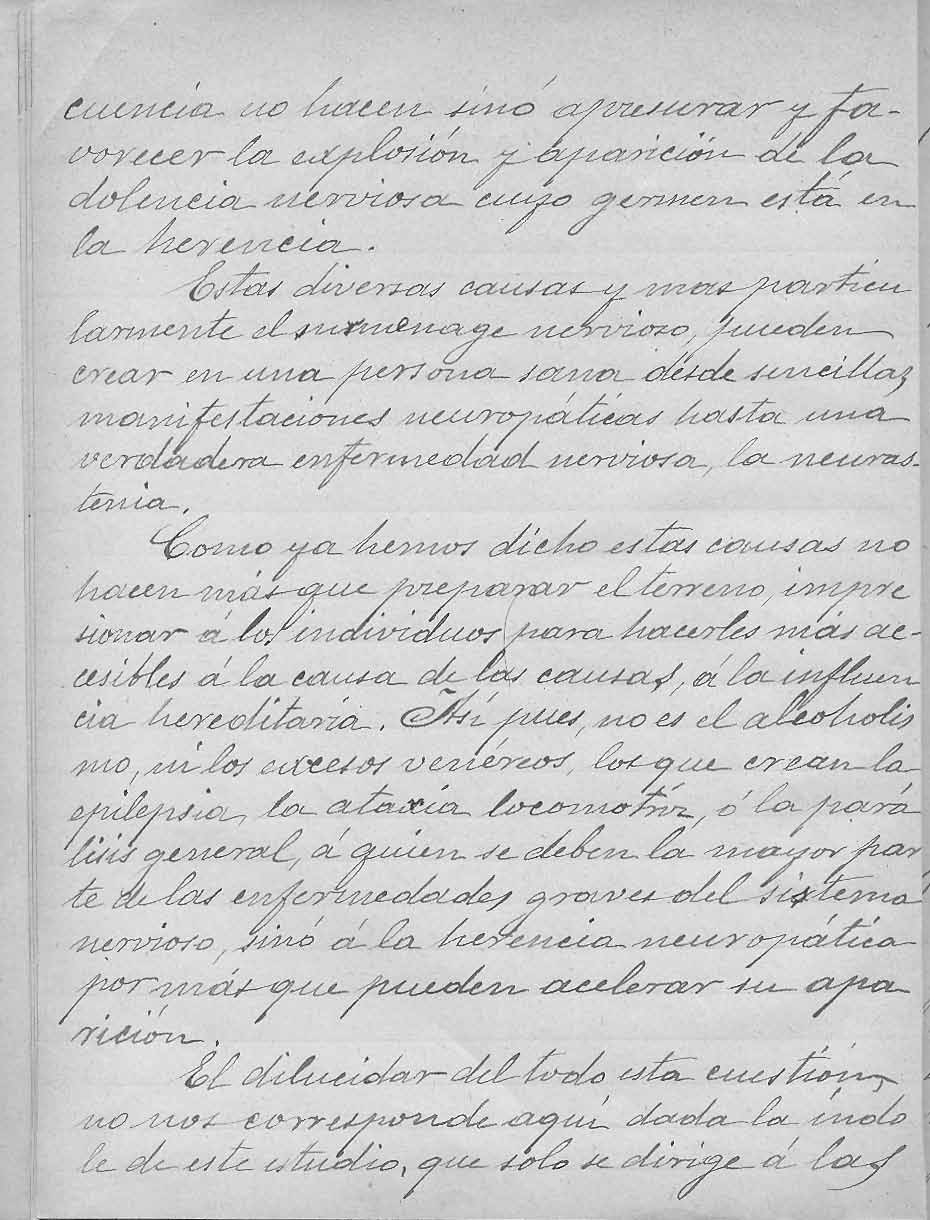 cuencia no hacen sinó apresurar y fa-
vorecer la explosión y aparición de la
dolencia nerviosa cuyo germen está en
la herencia.
Estas diversas causas y mas particu
larmente el surmenage nervioso, pueden
crear en una persona sana desde sencillas
manifestaciones neuropáticas hasta una
verdadera enfermedad nerviosa, la neuras-
tenia.
Como ya hemos dicho estas causas no
hacen más que preparar el terreno, impre
sionar á los individuos para hacerles más ac-
cesibles á la causa de las causas, á la influen
cia hereditaria. Así pues, no es el alcoholis
mo, ni los excesos venéreos, los que crean la
epilepsia, la ataxia locomotríz, ó la pará
lisis general, á quien se deben la mayor par
te de las enfermedades graves del sistema
nervioso, sinó á la herencia neuropática
por más que pueden acelerar su apa
rición.
El dilucidar del todo esta cuestión,
no nos corresponde aquí dada la índo
le de este estudio, que solo se dirige á las